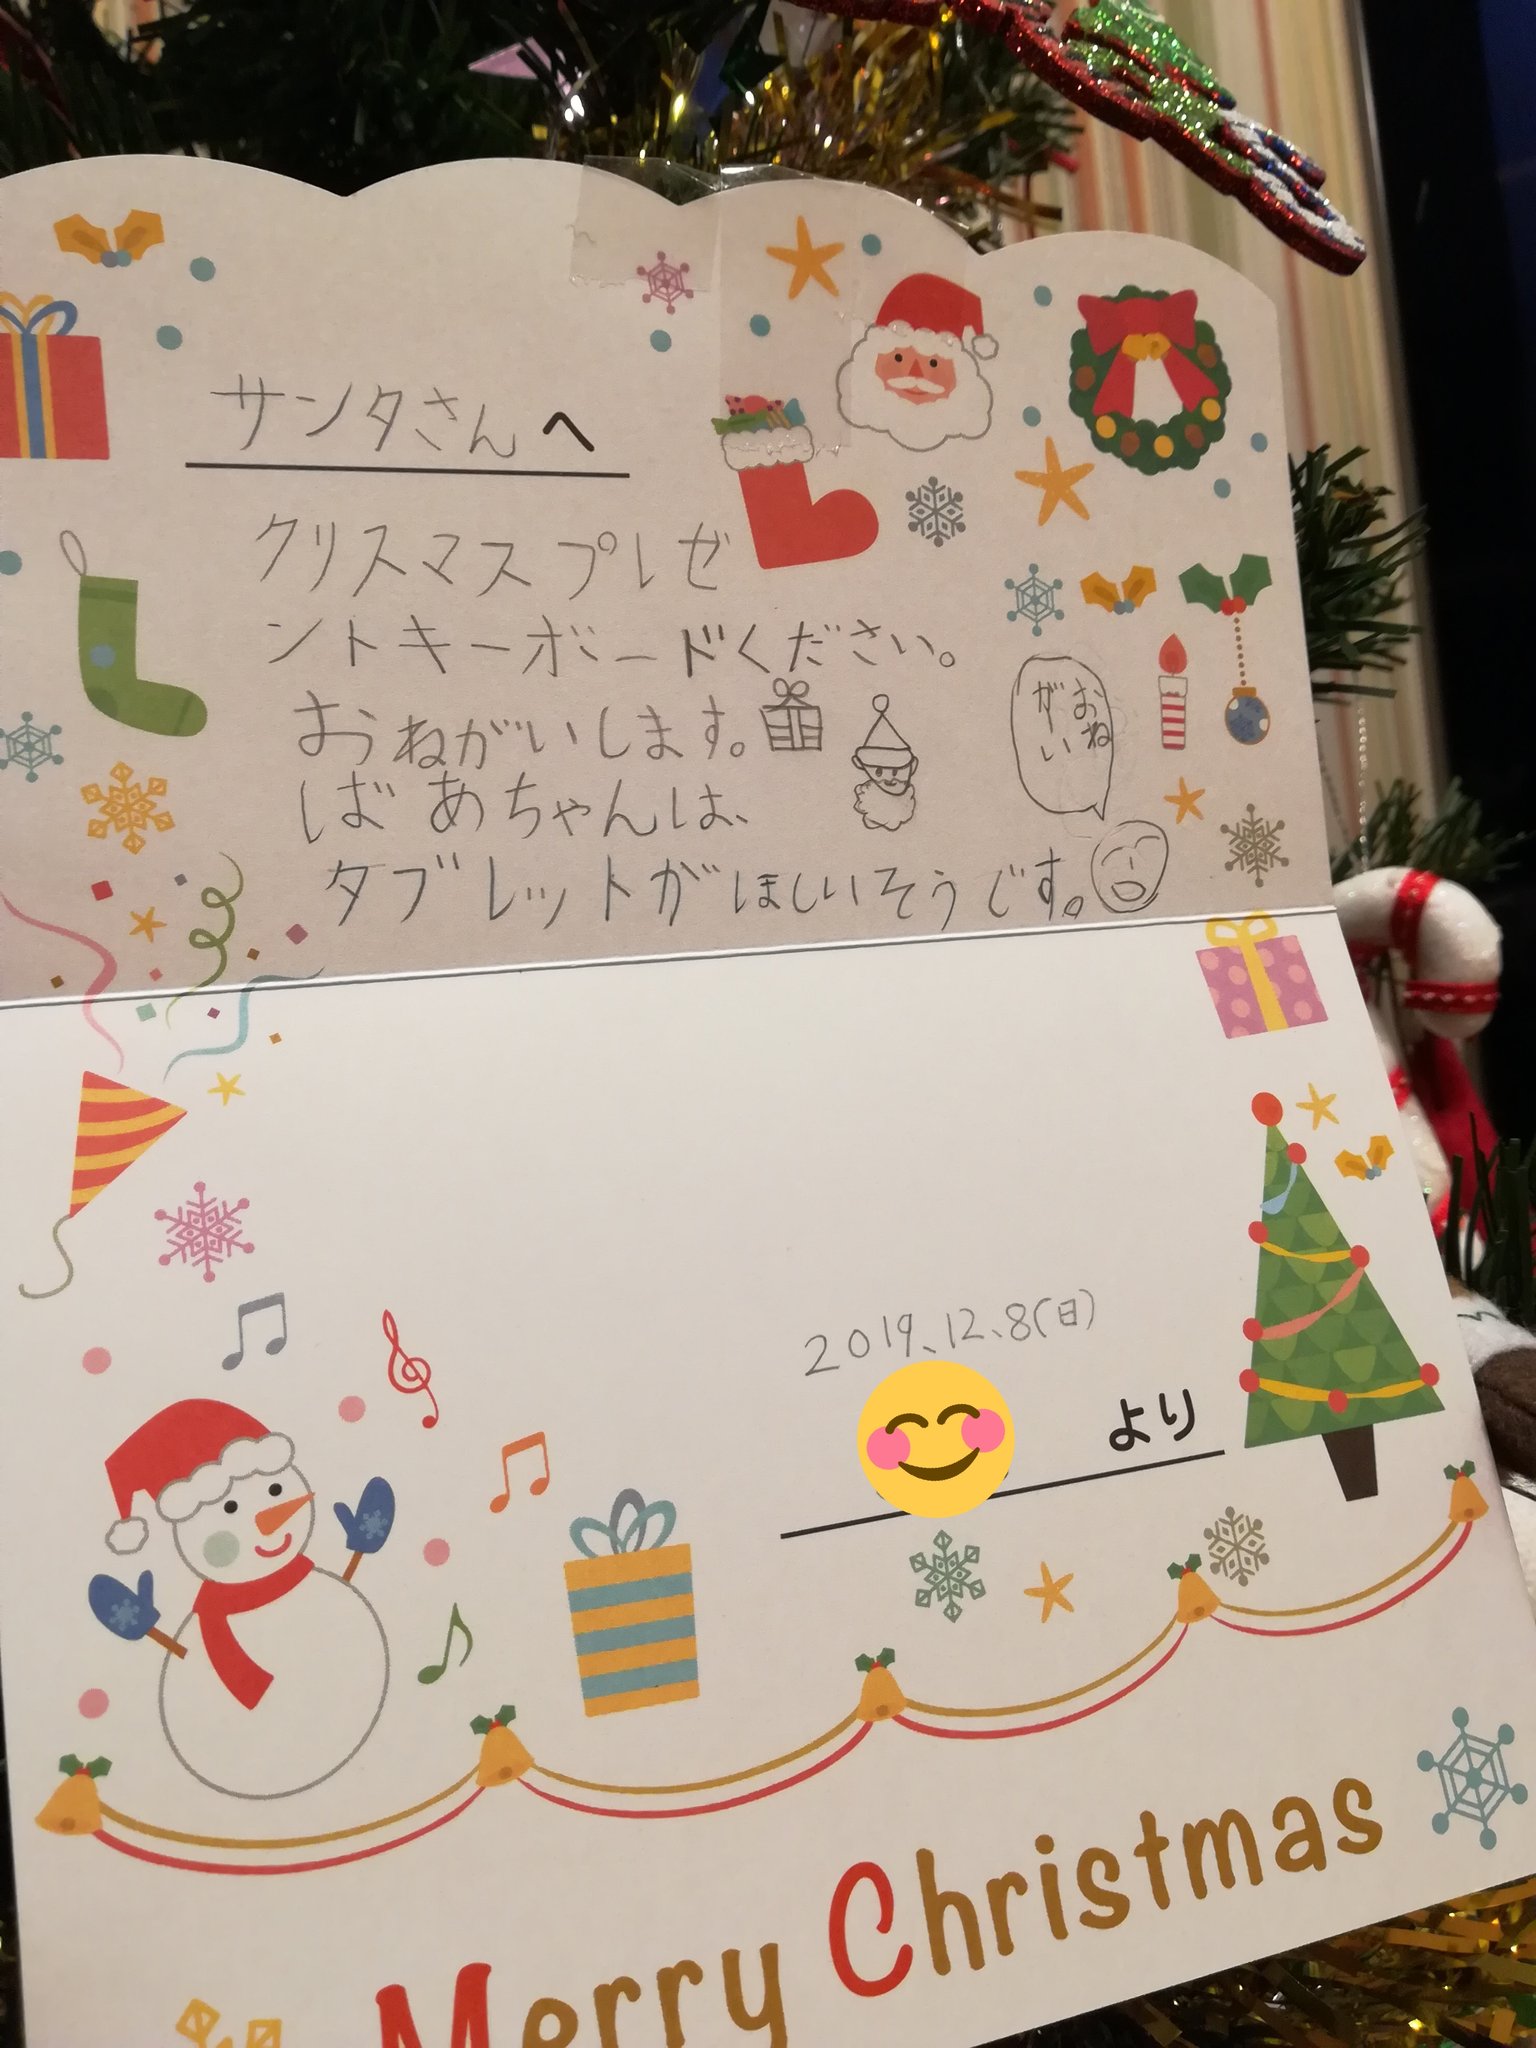 サンタさんへ
クリスマスプレゼ
ントキーボードください。
おねがいします。
おね
がい
ばあちゃんは、
タブレットがほしいそうです。
2019.12.8(日)
より
Merry Christmas